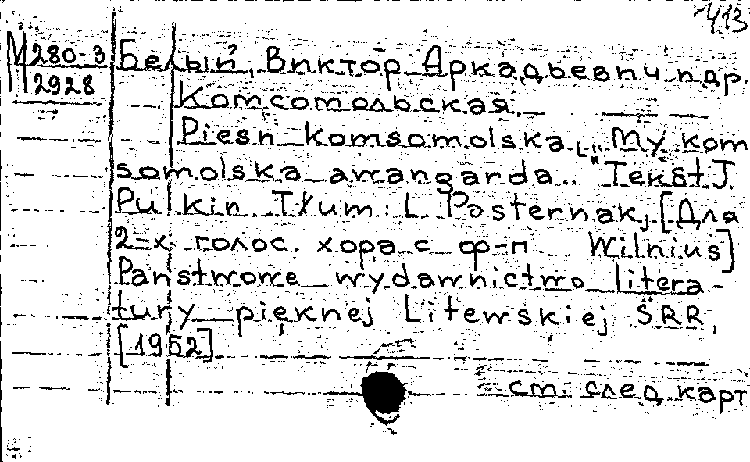 413
М 280-3
2928
Белый, Виктор Аркадьевич и др.
Комсомольская.
Piesn komsomolska. [„My kom
somolska awangarda.." Tekst J.
Pulkin. Tłum. L. Pasternak. [Для
2-х голос. хора с ф-п Wilnius]
Państwowe wydawnictwo litera-
tury pięknej Litewskiej SRR,
[1952]
см. след. карт